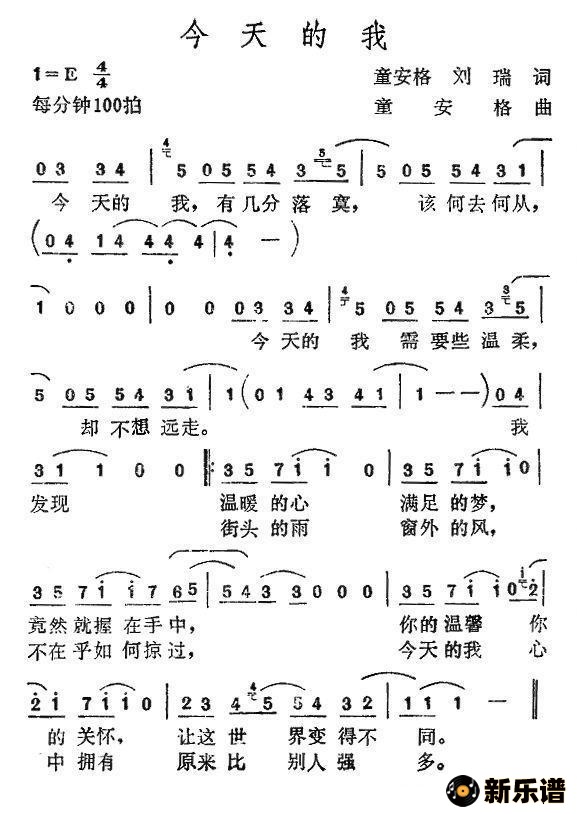 今天的我
1=E 4/4
童安格 刘瑞 词
每分钟100拍
童安格 曲
03 34 | 5 05 54 3 5 | 5 05 54 31 |
今 天的 我, 有 几分 落 寞, 该 何去 何从,
(04 14 44 4 | 4 —)
1 0 0 0 | 0 0 03 34 | 5 05 54 3 5
今 天的 我 需 要些 温 柔,
5 05 54 31 | 1 (01 43 41 | 1 — —) 04 |
却 不想 远走。 我
31 1 0 0 ‖: 35 71 1 0 | 35 71 10 |
发现 温暖 的心 满足 的梦,
街头 的雨 窗外 的风,
35 71 17 65 | 54 3 0 0 0 | 35 71 10 2 |
竟然 就握 在手 中, 你的 温馨 你
不在 乎如 何掠 过, 今天 的我 心
21 71 10 | 23 4 5 54 32 | 11 1 — ‖
的 关怀, 让这 世 界变 得不 同。
中 拥有 原来 比 别人 强 多。
新乐谱